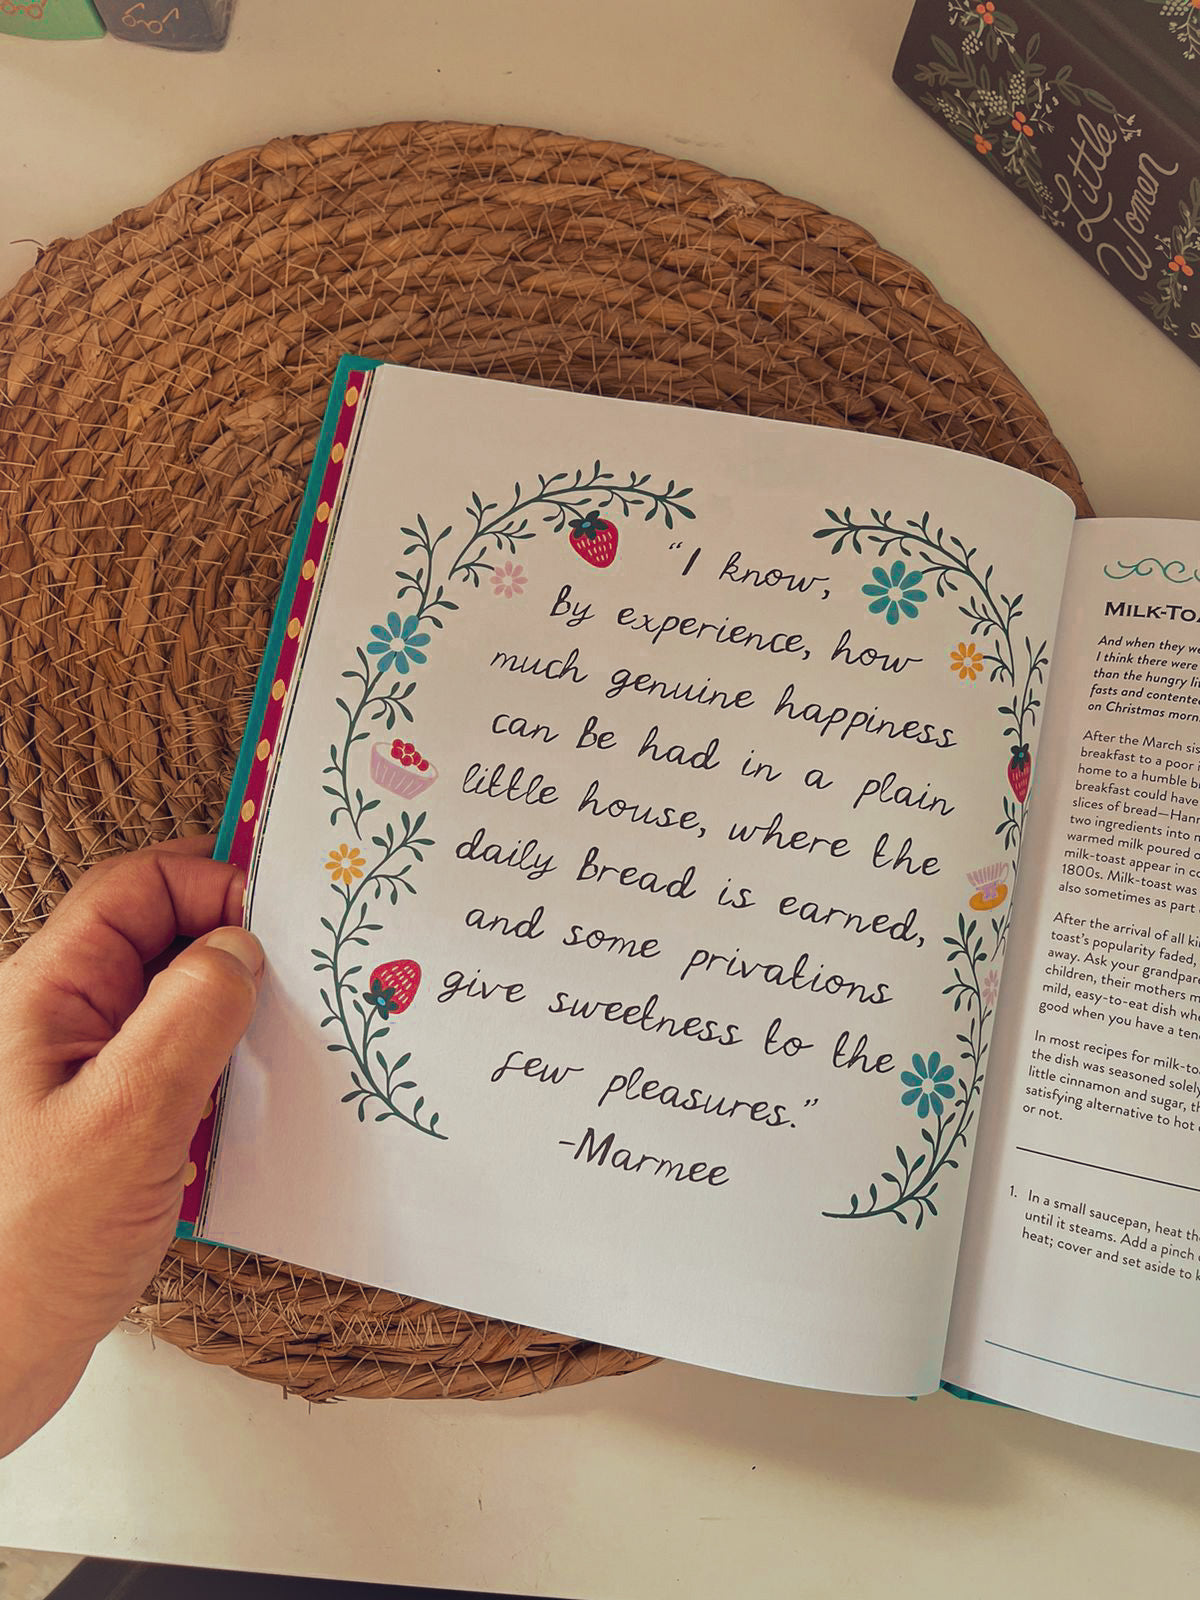 Little
Women
"I know,
by experience, how
much genuine happiness
can be had in a plain
little house, where the
daily bread is earned,
and some privations
give sweetness to the
few pleasures."
-Marmee
MILK-TOA
And when they we
I think there were
than the hungry lit
fasts and contented
on Christmas morn
After the March sis
breakfast to a poor i
home to a humble b
breakfast could have
slices of bread—Hann
two ingredients into
warmed milk poured
milk-toast appear in co
1800s. Milk-toast was
also sometimes as part
After the arrival of all ki
toast's popularity faded,
away. Ask your grandpare
children, their mothers m
mild, easy-to-eat dish whe
good when you have a ten
In most recipes for milk-to
the dish was seasoned solely
little cinnamon and sugar, th
satisfying alternative to hot
or not.
1. In a small saucepan, heat the
until it steams. Add a pinch
heat; cover and set aside to k